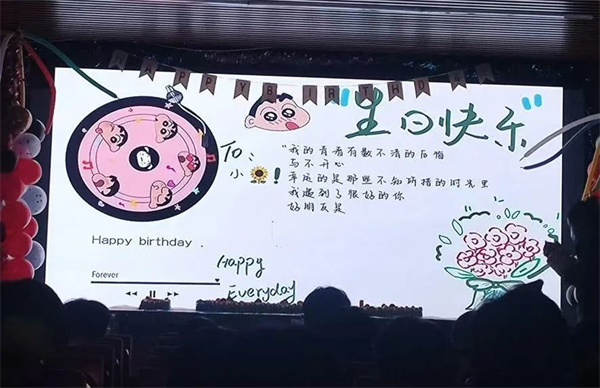 HAPPY BIRTHDA
"生日快乐"
To:
小🌻!
"我的青春有数不清的后悔
与不开心
幸运的是那些不知所措的时光里
我遇到了很好的你
好朋友是
Happy birthday .
Forever
Happy
Everyday